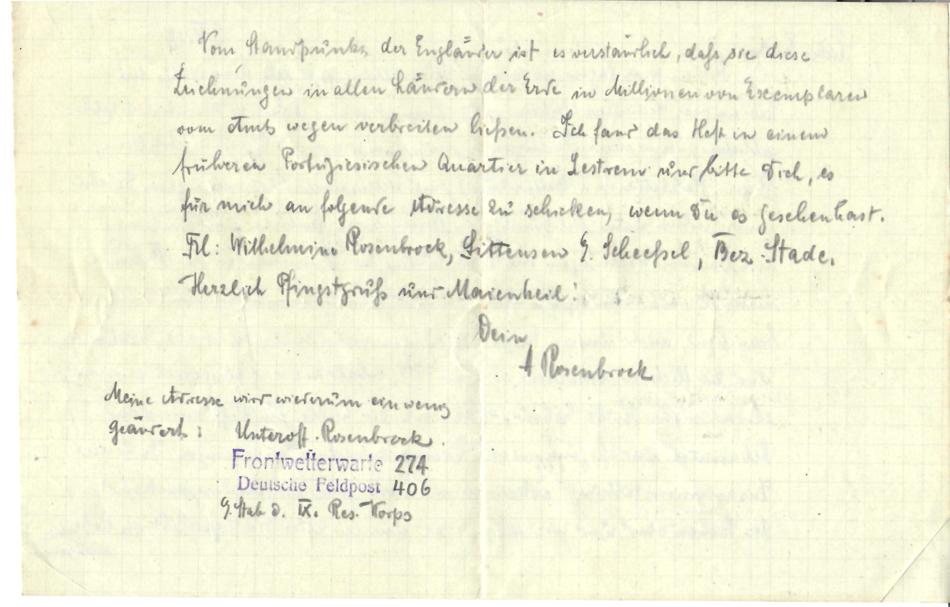 Vom Standpunkte der Engländer ist es verständlich, daß sie diese
Zeichnungen in allen Ländern der Erde in Millionen von Exemplaren
vom Amts wegen verbreiten ließen. Ich fand das Heft in einem
früheren Portugiesischen Quartier in Lestrem und bitte Dich, es
für mich an folgende Adresse zu schicken, wenn Du es gesehen hast.
Frl: Wilhelmine Rosenbrock, Sittensen b. Scheeßel, Bez. Stade.
Herzlich Pfingstgruß und Maienheil!
Dein
A Rosenbrock
Meine Adresse wird wiederum ein wenig
geändert: Unteroff. Rosenbrock.
Frontwetterwarte 274
Deutsche Feldpost 406
b. Stab d. IX. Res. Korps